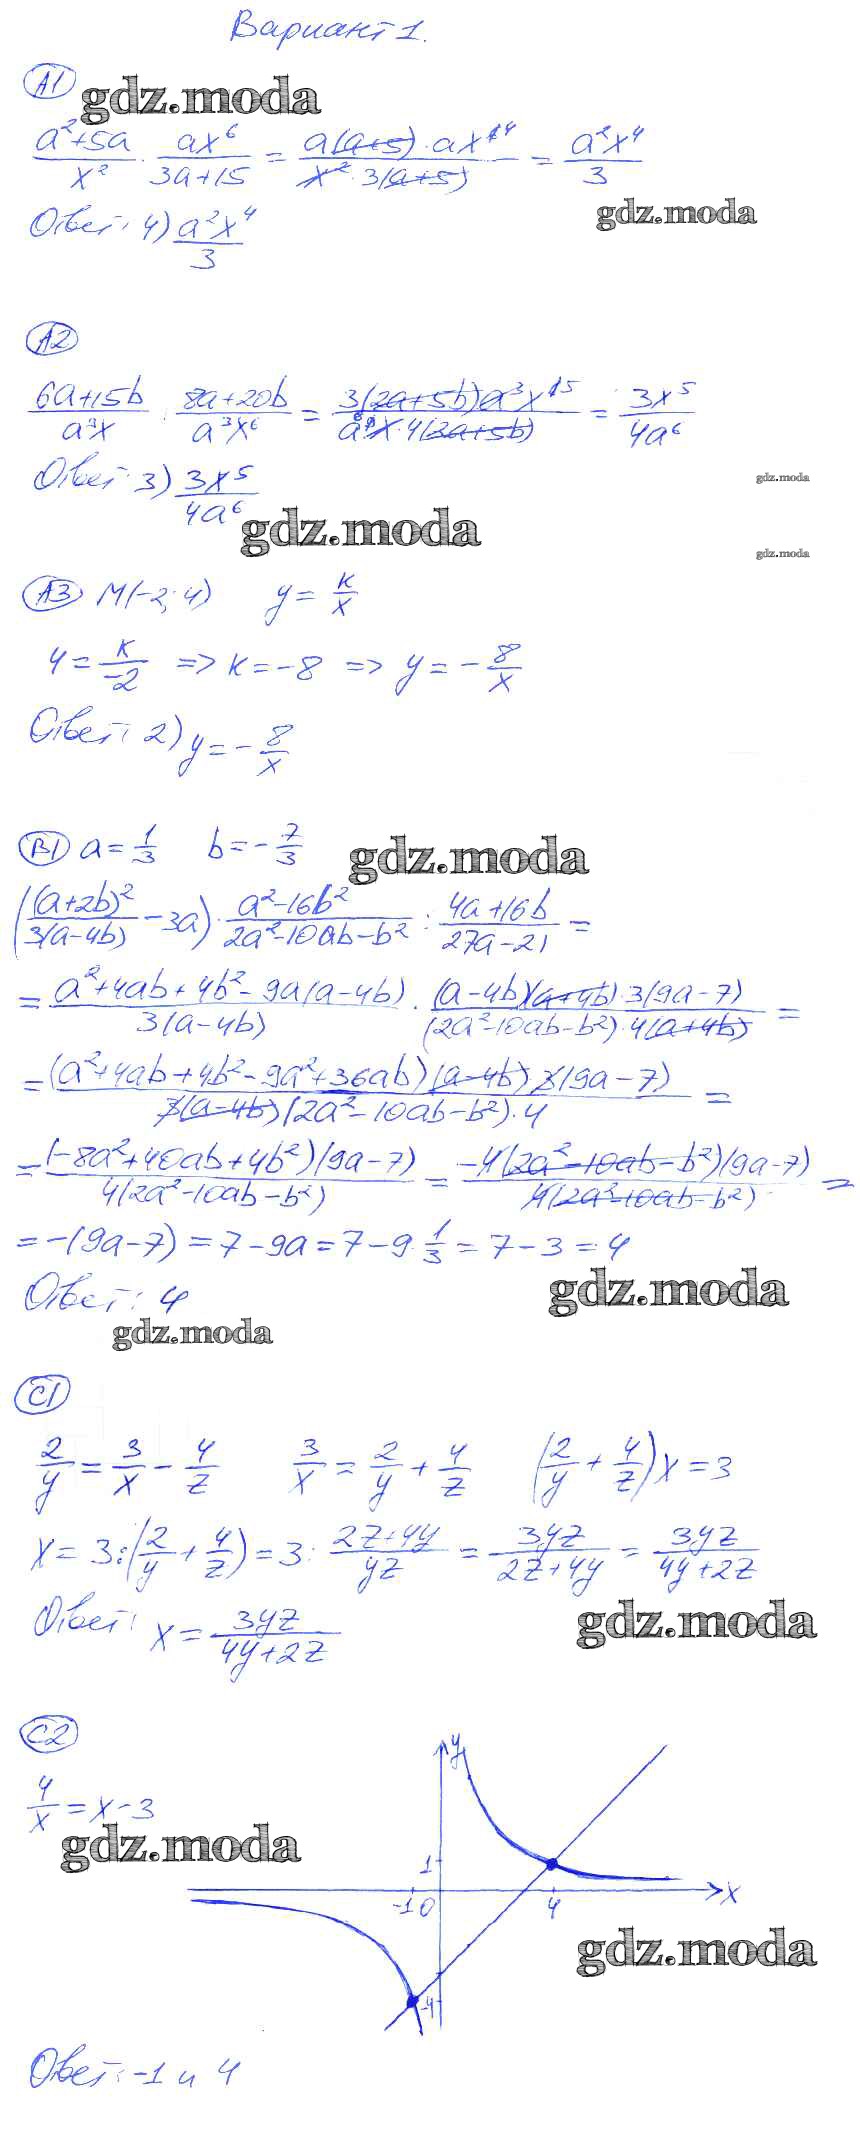 Вариант 1.
А1
gdz.moda
(a²+5a)/x² · ax⁶/(3a+15) = (a(a+5)·ax⁶⁴)/(x²·3(a+5)) = a²x⁴/3
gdz.moda
Ответ: 4) a²x⁴/3
А2
(6a+15b)/(a⁹x) : (8a+20b)/(a³x⁶) = (3(2a+5b)a³x⁶⁵)/(a⁹⁶x·4(2a+5b)) = 3x⁵/4a⁶
Ответ: 3) 3x⁵/4a⁶
gdz.moda
gdz.moda
gdz.moda
А3 M(-2; 4) y = k/x
4 = k/-2 => k = -8 => y = -8/x
Ответ: 2) y = -8/x
В1 a = 1/3 b = -7/3
gdz.moda
((a+2b)²/3(a-4b) - 3a) · (a²-16b²)/(2a²-10ab-b²) : (4a+16b)/(27a-21) =
= (a²+4ab+4b²-9a(a-4b))/3(a-4b) · ((a-4b)(a+4b)·3(9a-7))/((2a²-10ab-b²)·4(a+4b)) =
= ((a²+4ab+4b²-9a²+36ab)(a-4b)3(9a-7))/(3(a-4b)(2a²-10ab-b²)·4) =
= ((-8a²+40ab+4b²)(9a-7))/(4(2a²-10ab-b²)) = (-4(2a²-10ab-b²)(9a-7))/(4(2a²-10ab-b²)) =
= -(9a-7) = 7-9a = 7-9·1/3 = 7-3 = 4
Ответ: 4
gdz.moda
gdz.moda
С1
2/y = 3/x - 4/z 3/x = 2/y + 4/z (2/y + 4/z)x = 3
x = 3:(2/y + 4/z) = 3: (2z+4y)/yz = 3yz/(2z+4y) = 3yz/(4y+2z)
Ответ: x = 3yz/(4y+2z)
gdz.moda
С2
4/x = x-3
gdz.moda
y
1
-1 0 4 x
-4
gdz.moda
Ответ: -1 и 4